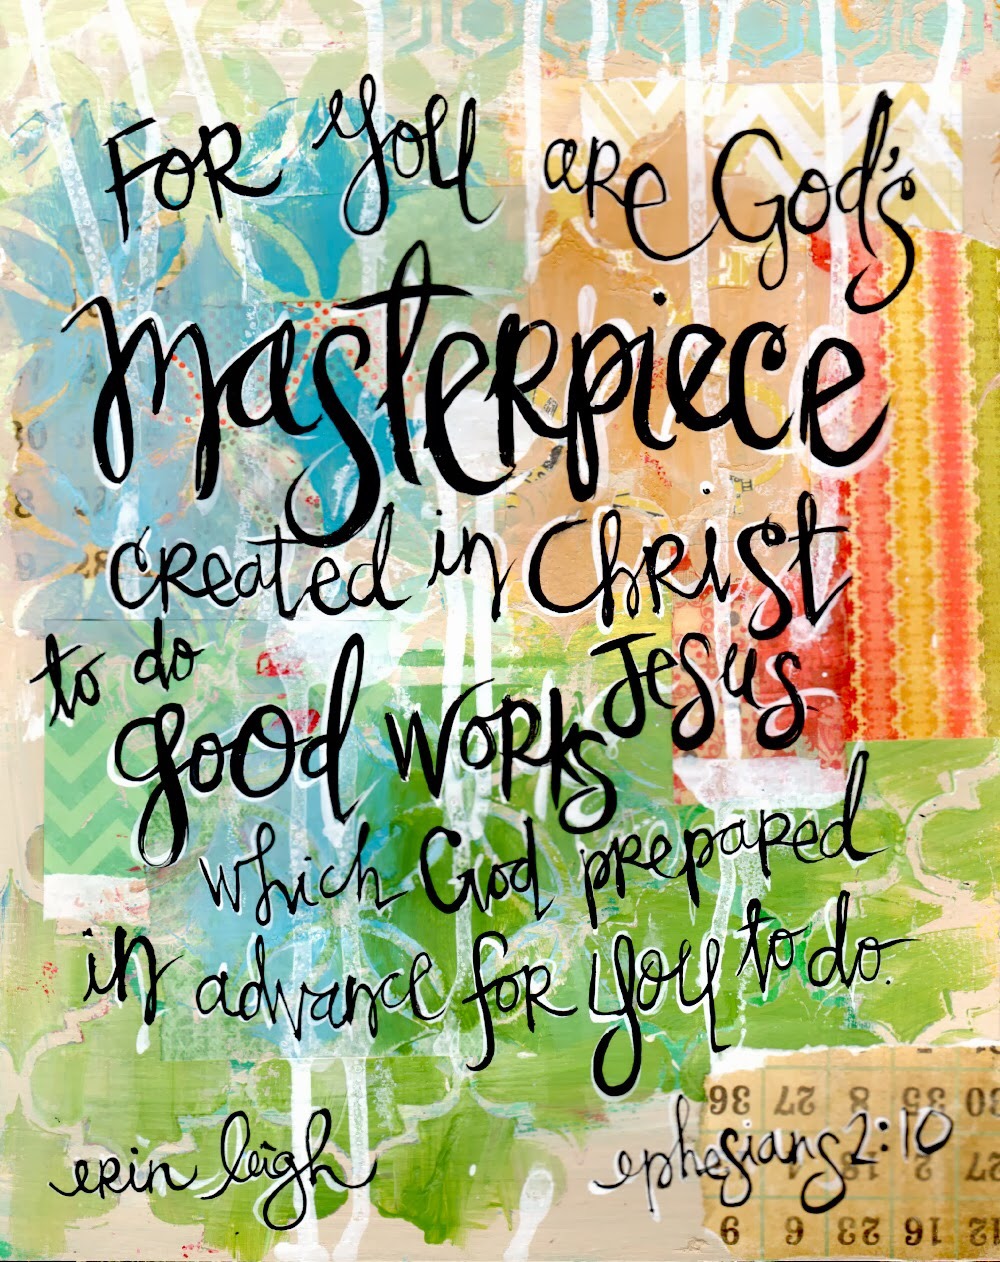 For You are God's
Masterpiece
created in Christ
Jesus
to do
good works
which God prepared
in advance for you to do.
erin leigh
ephesians 2:10
36 27 8 35 30
14 18 2 27
9 6 23 16 12